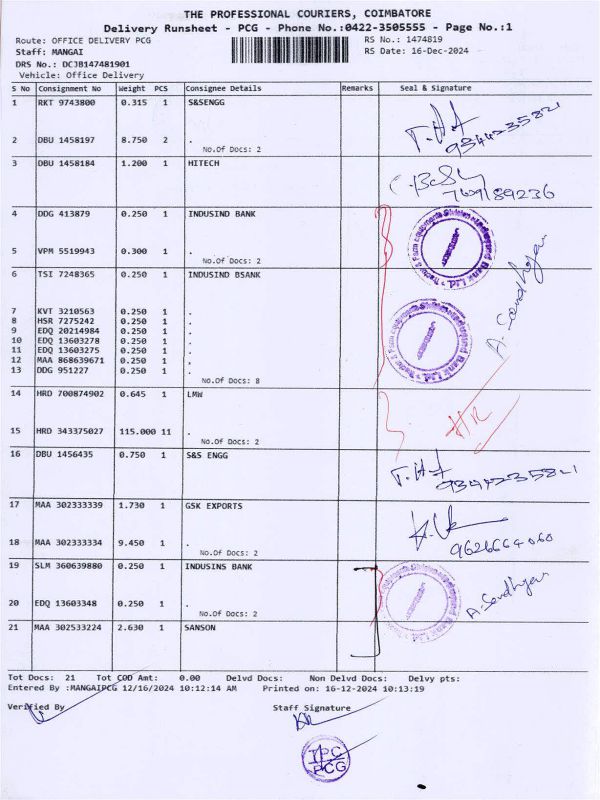 THE PROFESSIONAL COURIERS, COIMBATORE
Delivery Runsheet - PCG - Phone No.:0422-3505555 - Page No.:1
Route: OFFICE DELIVERY PCG RS No.: 1474819
Staff: MANGAI RS Date: 16-Dec-2024
DRS No.: DCJB147481901
Vehicle: Office Delivery
S No Consignment No Weight PCS Consignee Details Remarks Seal & Signature
1 RKT 9743800 0.315 1 S&SENGG
2 DBU 1458197 8.750 2 .
No.Of Docs: 2
3 DBU 1458184 1.200 1 HITECH
4 DDG 413879 0.250 1 INDUSIND BANK
5 VPM 5519943 0.300 1 .
No.Of Docs: 2
6 TSI 7248365 0.250 1 INDUSIND BSANK
7 KVT 3210563 0.250 1 .
8 HSR 7275242 0.250 1 .
9 EDQ 20214984 0.250 1 .
10 EDQ 13603278 0.250 1 .
11 EDQ 13603275 0.250 1 .
12 MAA 868639671 0.250 1 .
13 DDG 951227 0.250 1 .
No.Of Docs: 8
14 HRD 700874902 0.645 1 LMW
HR
15 HRD 343375027 115.000 11 .
No.Of Docs: 2
16 DBU 1456435 0.750 1 S&S ENGG
9344235821
17 MAA 302333339 1.730 1 GSK EXPORTS
18 MAA 302333334 9.450 1 .
9626664060
No.Of Docs: 2
19 SLM 360639880 0.250 1 INDUSINS BANK
20 EDQ 13603348 0.250 1 .
No.Of Docs: 2
21 MAA 302533224 2.630 1 SANSON
Tot Docs: 21 Tot COD Amt: 0.00 Delvd Docs: Non Delvd Docs: Delvy pts:
Entered By :MANGAIPCG 12/16/2024 10:12:14 AM Printed on: 16-12-2024 10:13:19
Verified By Staff Signature
TPC
PCG